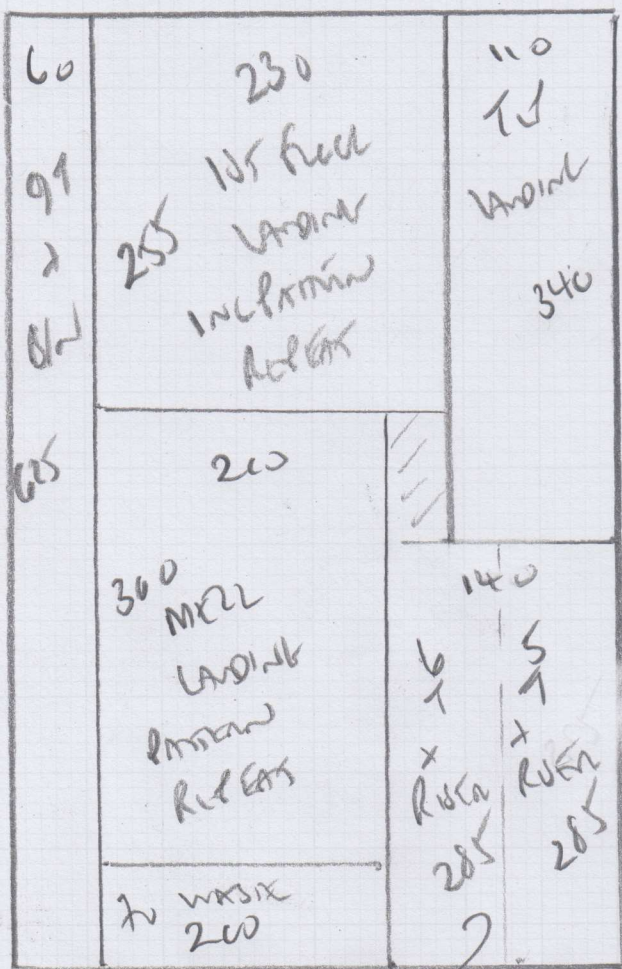 60
9T
625
230
255
1ST FLOOR
LANDING
INC PATTERN
REPEAT
110
LANDING
340
200
360
MEZZ
LANDING
PATTERN
REPEAT
70 WASTE
200
140
6
T
X
RISER
285
5
T
X
RISER
285